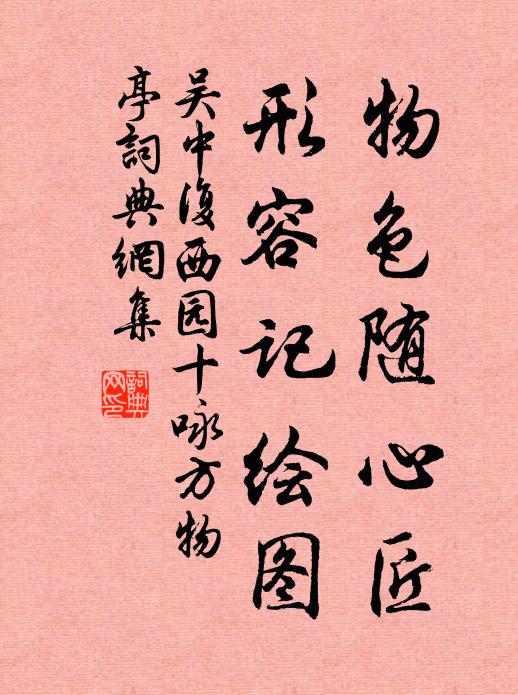 物色随心匠
形容记绘图
吴中復西园十咏方物
亭詞典網集
詞典
网印